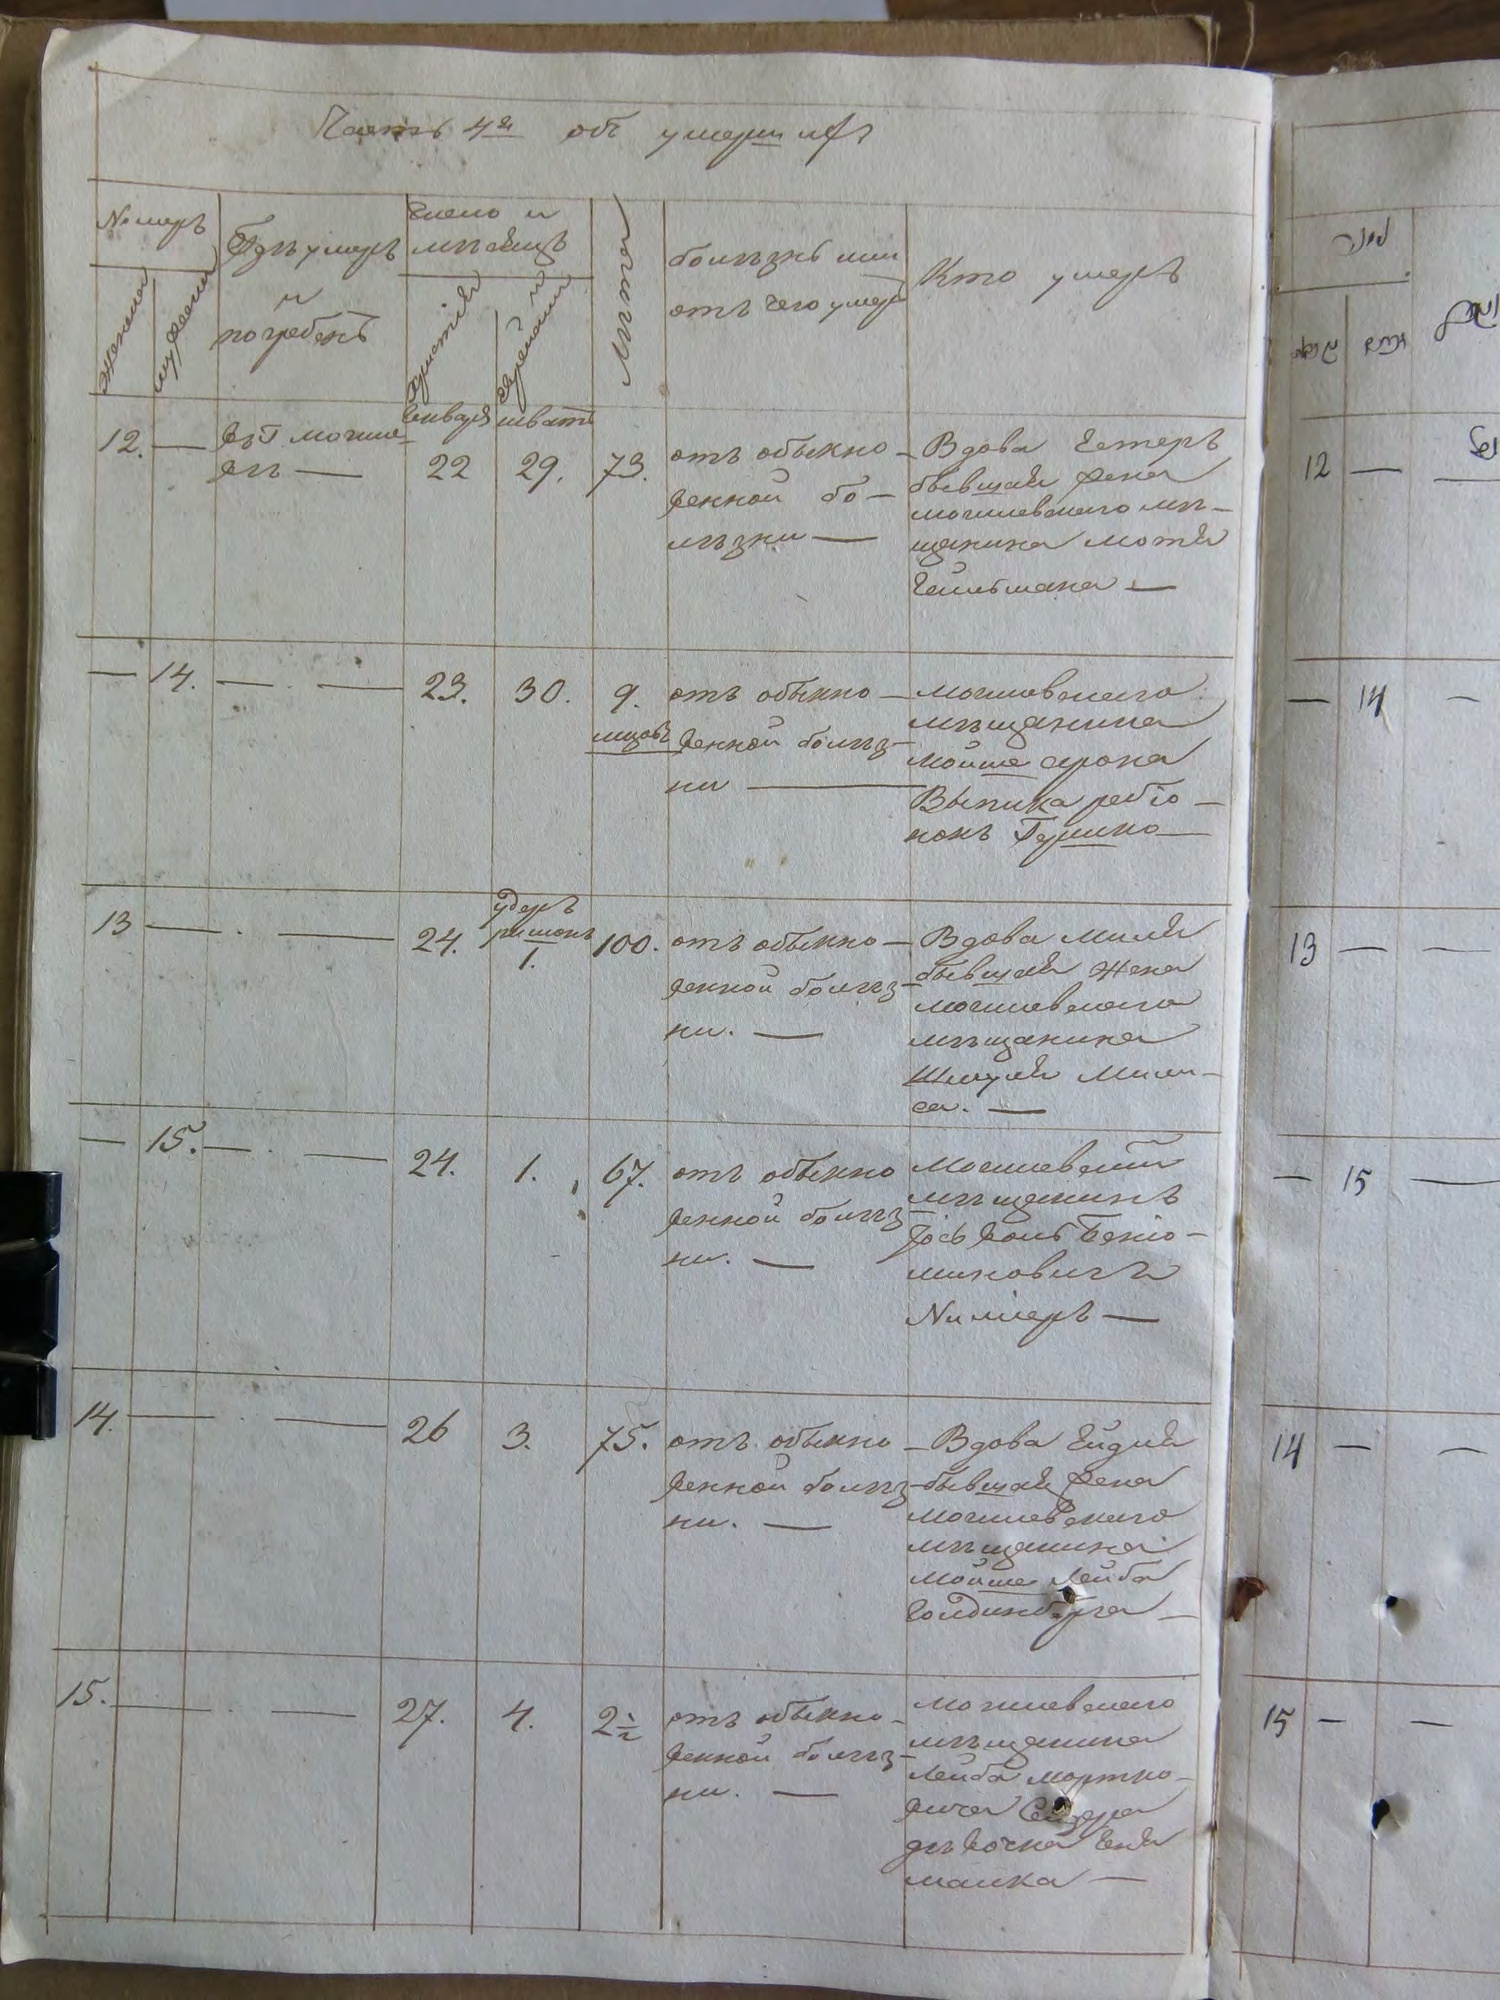 Часть 4я объ умершихъ
Номеръ
женска
мужеска
Гдѣ умеръ
и
погребенъ
Число и
мѣсяцъ
христiан
еврейский
Лѣта
болѣзнь или
отъ чего умеръ
Кто умеръ
12. —
въ г Могиле
вѣ —
Января
22
шватъ
29.
73.
отъ обыкно —
венной бо —
лѣзни —
Вдова Естеръ
бывшая жена
могилевскаго мѣ —
щанина Мотя
Гельмана —
— 14. — —
23.
30.
9.
мцовъ
отъ обыкно —
венной болѣз —
ни —
могилевскаго
мѣщанина
Мойше Арона
Выпика ребіо —
нокъ Гершко —
13 — —
24.
удеръ
ришонъ
1.
100.
отъ обыкно —
венной болѣз —
ни. —
Вдова Миля
бывшая жена
могилевскаго
мѣщанина
Шмуля Мили —
са. —
— 15. — —
24.
1.
67.
отъ обыкно
венной болѣз
ни. —
Могилевский
мѣщанинъ
Іось Вольф Беніо —
миновичъ
Nимеръ —
14. — —
26
3.
75.
отъ обыкно —
венной болѣз —
ни. —
Вдова Ейдля
бывшая жена
могилевскаго
мѣщанина
Мойше Лейба
Голдинберга —
15. — —
27.
4.
2½
отъ обыкно —
венной болѣз —
ни. —
могилевскаго
мѣщанина
Лейба Мортко —
вича
дѣвочка Еня
малка —
12 —
— 14 —
13 — —
— 15 —
14 — —
15 — —